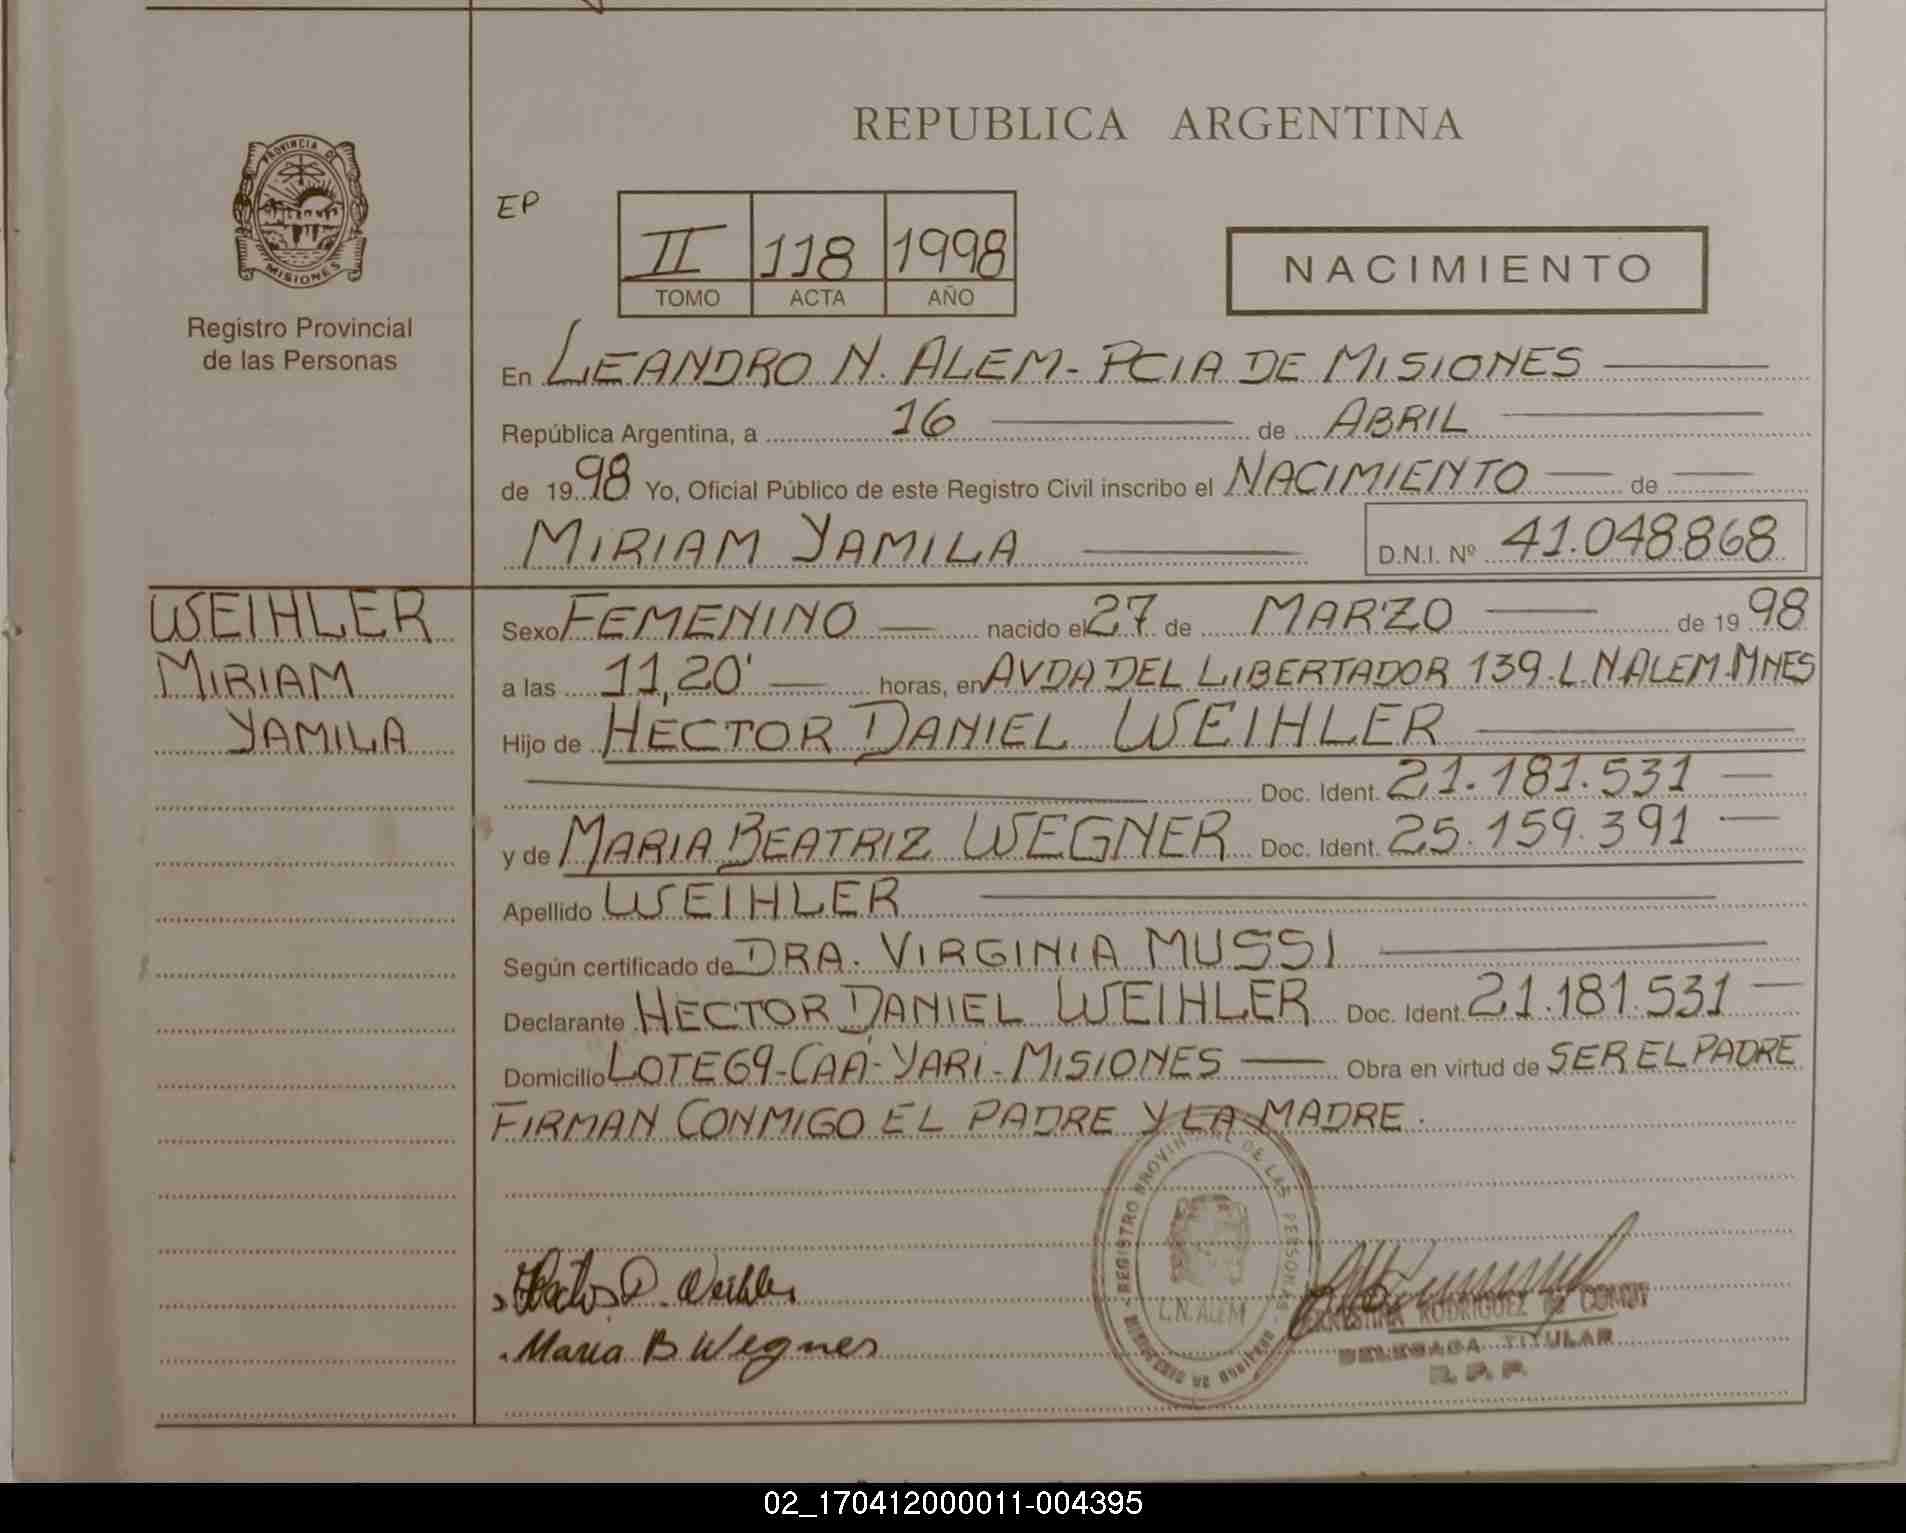 REPUBLICA ARGENTINA
PROVINCIA DE
MISIONES
Registro Provincial
de las Personas
EP
II 118 1998
TOMO ACTA AÑO
NACIMIENTO
En LEANDRO N. ALEM - PCIA DE MISIONES
República Argentina, a 16 de ABRIL
de 1998 Yo, Oficial Público de este Registro Civil inscribo el NACIMIENTO de
MIRIAM YAMILA D.N.I. Nº 41.048.868
WEIHLER
MIRIAM
YAMILA
Sexo FEMENINO nacido el 27 de MARZO de 1998
a las 11,20' horas, en AVDA DEL LIBERTADOR 139-L.N.ALEM-MNES
Hijo de HECTOR DANIEL WEIHLER
Doc. Ident. 21.181.531
y de MARIA BEATRIZ WEGNER Doc. Ident. 25.159.391
Apellido WEIHLER
Según certificado de DRA. VIRGINIA MUSSI
Declarante HECTOR DANIEL WEIHLER Doc. Ident. 21.181.531
Domicilio LOTE 69-CAÁ-YARI-MISIONES Obra en virtud de SER EL PADRE
FIRMAN CONMIGO EL PADRE Y LA MADRE.
REGISTRO PROVINCIAL DE LAS PERSONAS
L.N. ALEM
Hector D. Weihler
Maria B Wegner
ERNESTINA RODRIGUEZ DE
DELEGADA TITULAR
R. P. P.
02_170412000011-004395